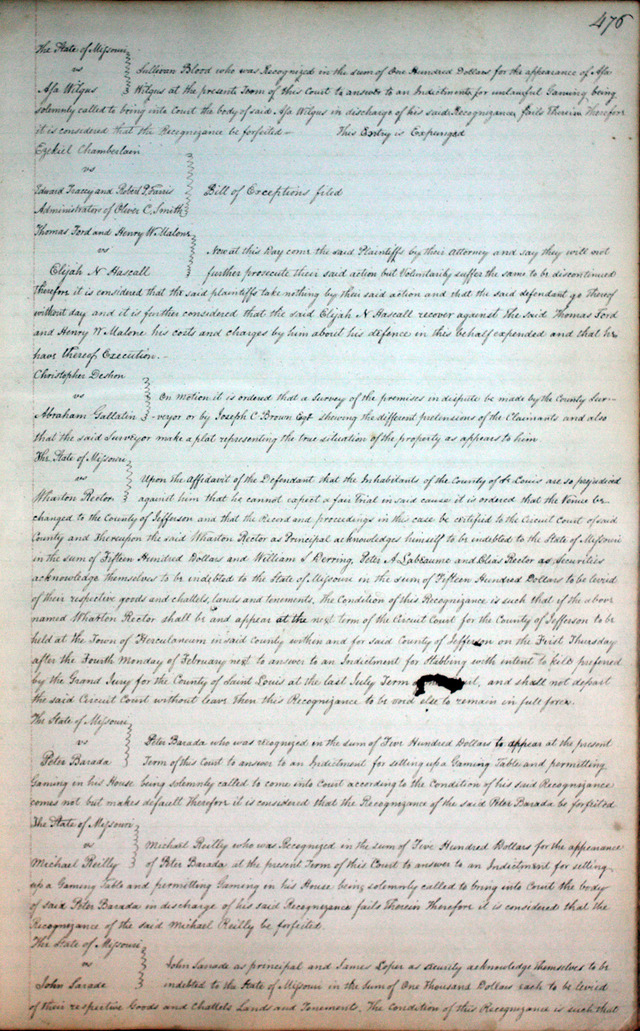 476
The State of Missouri
vs
Sullivan Blood who was Recognized in the sum of One Hundred Dollars for the appearance of Asa
Asa Wilgus
Wilgus at the present Term of this Court to answer to an Indictment for unlawful Gaming being
solemnly called to bring into Court the body of said Asa Wilgus in discharge of his said Recognizance fails Therein Therefore
it is considered that the Recognizance be forfeited — This Entry is Expunged
Ezekiel Chamberlain
vs
Edward Tracey and Robert P. Farris
Bill of Exceptions filed
Administrators of Oliver C. Smith
Thomas Ford and Henry W. Malone
vs
Now at this Day come the said Plaintiffs by their Attorney and say they will not
Elijah N Hascall
further prosecute their said action but Voluntarily suffer the same to be discontinued
Therefore it is considered that the said plaintiffs take nothing by their said action and that the said defendant go Thereof
without day and it is further considered that the said Elijah N Hascall recover against the said Thomas Ford
and Henry W Malone his costs and charges by him about his defence in this behalf expended and that he
have thereof Execution. —
Christopher Deshon
vs
On motion it is ordered that a Survey of the premises in dispute be made by the County Sur-
Abraham Gallatin
-veyor or by Joseph C Brown Esqr shewing the different pretensions of the Claimants and also
that the said Surveyor make a plat representing the true situation of the property as appears to him
The State of Missouri
vs
Upon the Affidavit of the Defendant that the Inhabitants of the County of St Louis are so prejudiced
Wharton Rector
against him that he cannot expect a fair Trial in said cause it is ordered that the Venue be
changed to the County of Jefferson and that the Record and proceedings in this case be certified to the Circuit Court of said
County and Thereupon the said Wharton Rector as Principal acknowledges himself to be indebted to the State of Missouri
in the sum of Fifteen Hundred Dollars and William S Derring, Peter A. Labeaume and Elias Rector as Securities
acknowledge themselves to be indebted to the State of Missouri in the sum of Fifteen Hundred Dollars to be levied
of their respective goods and chattels, lands and tenements, The Condition of this Recognizance is such that if the above
named Wharton Rector shall be and appear at the next term of the Circuit Court for the County of Jefferson to be
held at the Town of Herculaneum in said County within and for said County of Jefferson on the First Thursday
after the Fourth Monday of February next to answer to an Indictment for Stabbing with intent to kill preferred
by the Grand Jury for the County of Saint Louis at the last July Term and shall not depart
the said Circuit Court without leave then this Recognizance to be void else to remain in full force.
The State of Missouri
vs
Peter Barada who was recognized in the sum of Five Hundred Dollars to appear at the present
Peter Barada
Term of this Court to answer to an Indictment for setting up a Gaming Table and permitting
Gaming in his House being solemnly called to come into Court according to the Condition of his said Recognizance
comes not but makes default Therefore it is considered that the Recognizance of the said Peter Barada be forfeited
The State of Missouri
vs
Michael Reilly who was Recognized in the sum of Five Hundred Dollars for the appearance
Michael Reilly
of Peter Barada at the present Term of this Court to answer to an Indictment for setting
up a Gaming Table and permitting Gaming in his House being solemnly called to bring into Court the body
of said Peter Barada in discharge of his said Recognizance fails Therein Therefore it is considered that the
Recognizance of the said Michael Reilly be forfeited.
The State of Missouri
vs
John Sarade as principal and James Loper as security acknowledge themselves to be
John Sarade
indebted to the State of Missouri in the sum of One Thousand Dollars each to be levied
of their respective Goods and Chattels Lands and Tenements, The Condition of this Recognizance is such that